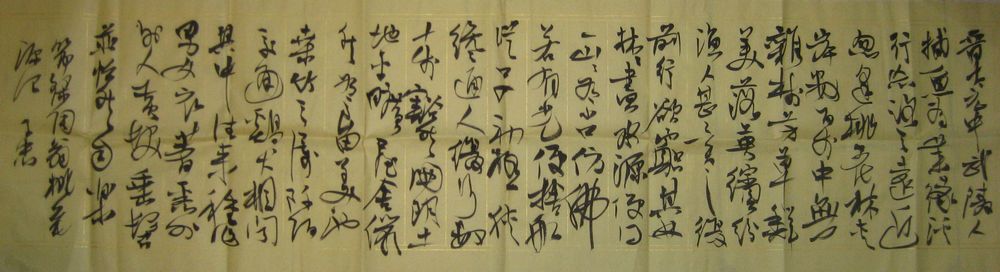 晉太元中武陵人
捕魚為業緣溪
行忘路之遠近
忽逢桃花林夾
岸數百步中無
雜樹芳草鮮
美落英繽紛
漁人甚異之復
前行欲窮其林
林盡水源便得
一山山有小口仿佛
若有光便捨船
從口入初極狹
纔通人復行數
十步豁然開朗土
地平曠屋舍儼
然有良田美池
桑竹之屬阡陌
交通雞犬相聞
其中往來種作
男女衣著悉如
外人黃髮垂髫
並怡然自樂
節錄陶翁桃花
源記